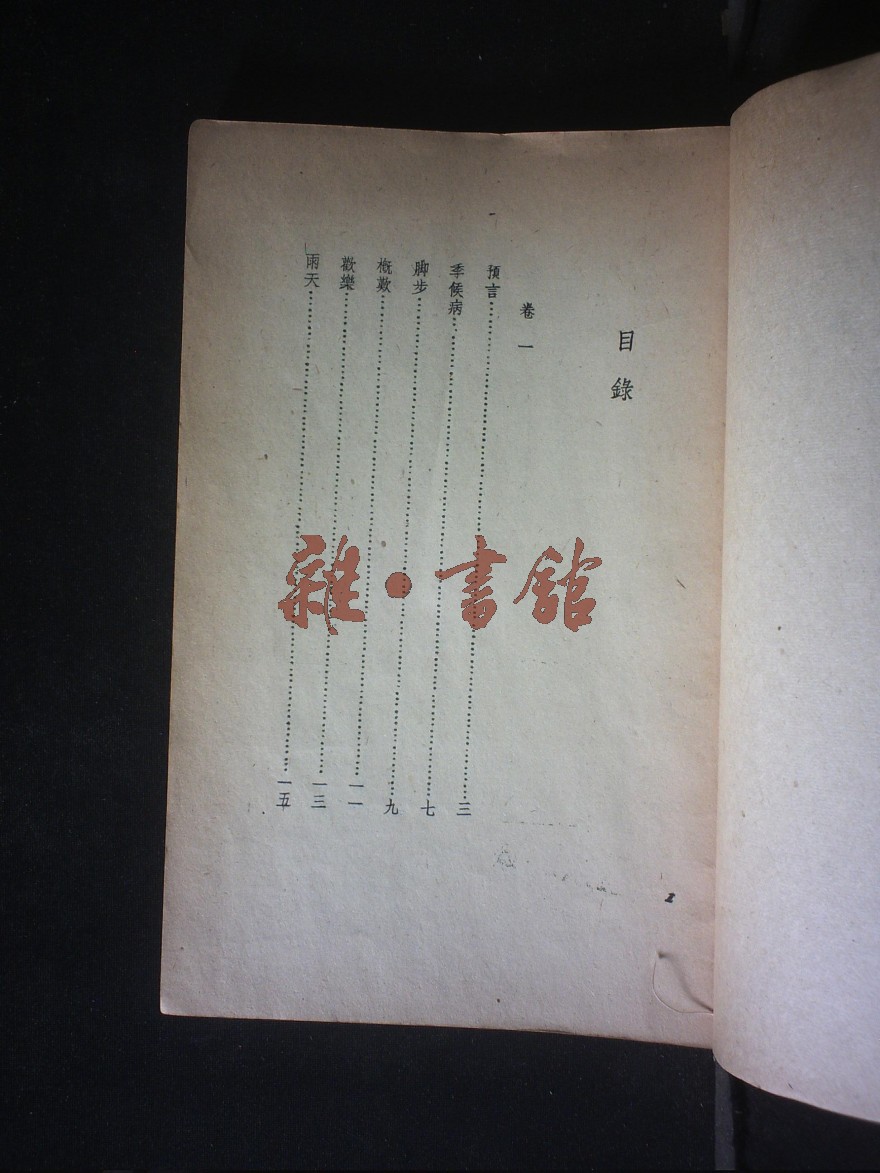 目錄
卷一
預言……三
季候病……七
脚步……九
概歎……一一
歡樂……一三
雨天……一五
雜·書館